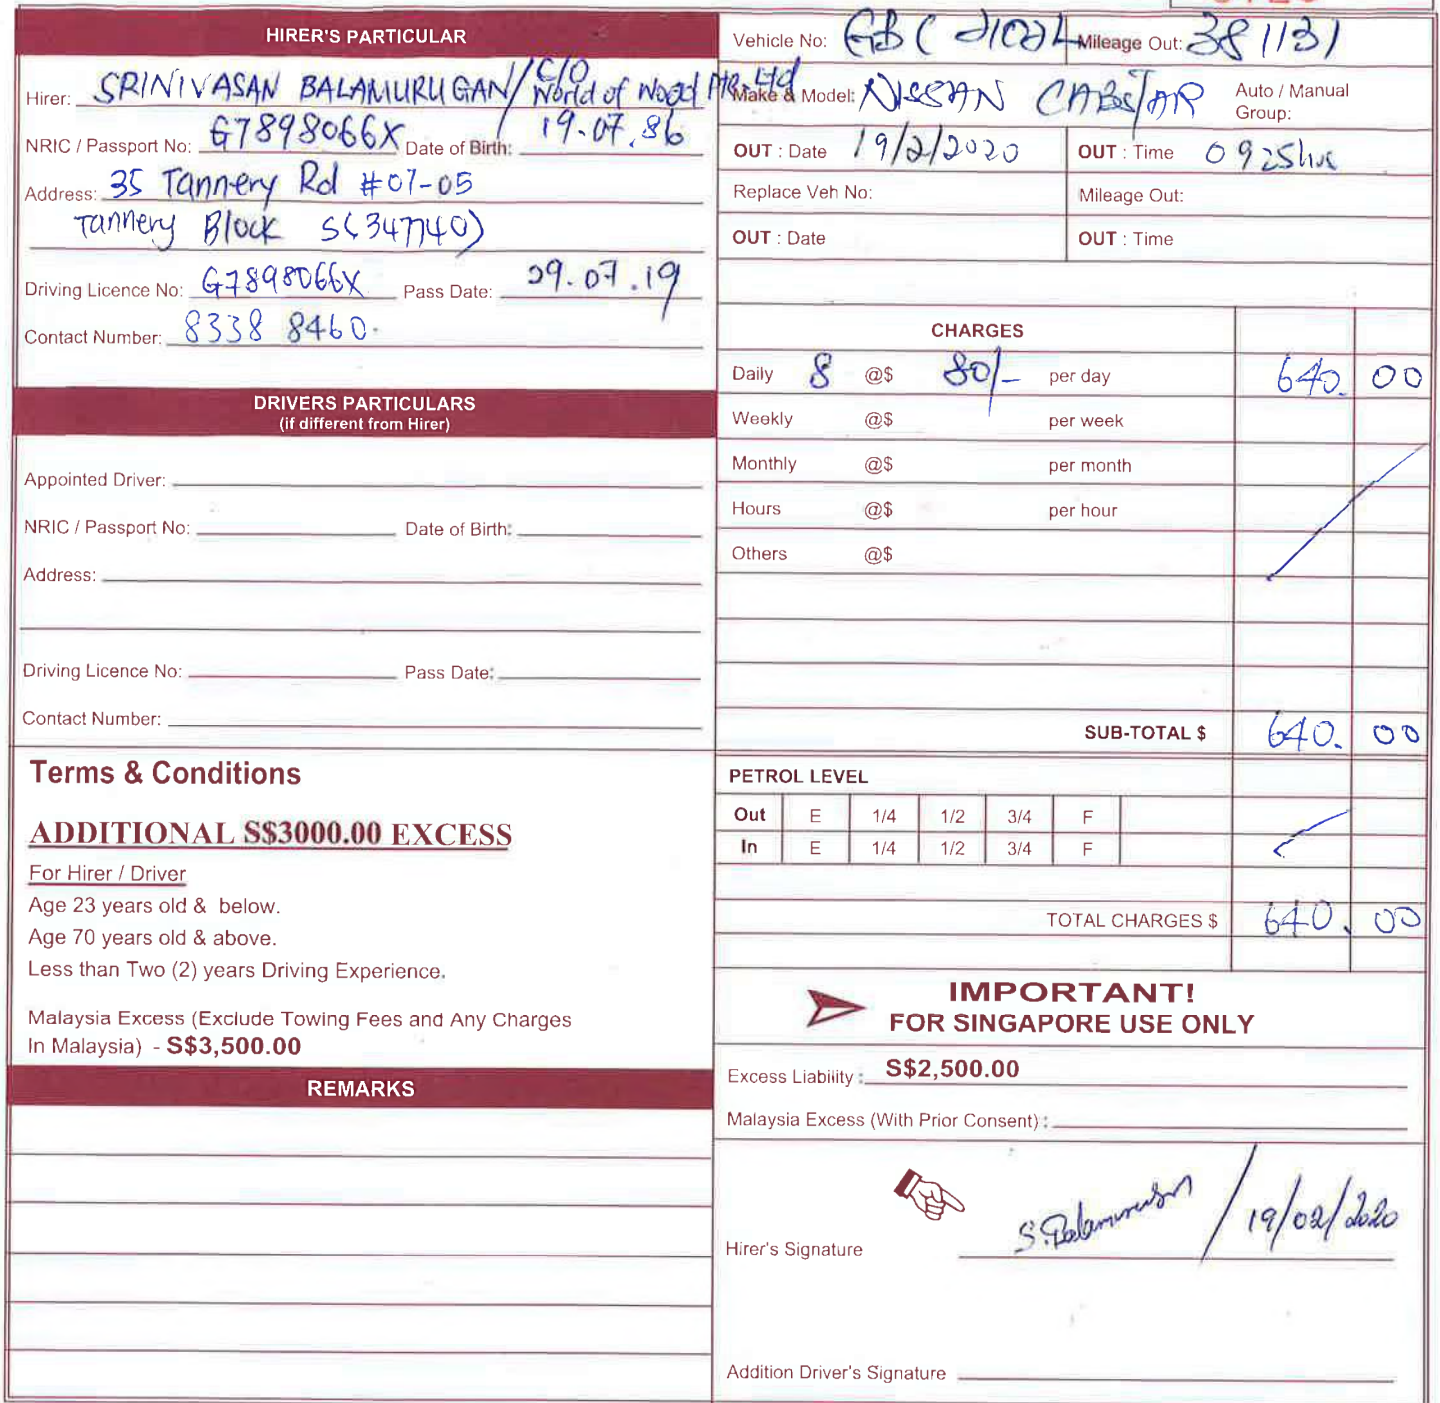 HIRER'S PARTICULAR
Hirer: SRINIVASAN BALAMURUGAN/ C/O World of Wood Pte. Ltd
NRIC / Passport No: G7898066X Date of Birth: 19.07.86
Address: 35 Tannery Rd #07-05
Tannery Block S(347740)
Driving Licence No: G7898066X Pass Date: 29.07.19
Contact Number: 8338 8460.
DRIVERS PARTICULARS
(if different from Hirer)
Appointed Driver:
NRIC / Passport No: Date of Birth:
Address:
Driving Licence No: Pass Date:
Contact Number:
Terms & Conditions
ADDITIONAL S$3000.00 EXCESS
For Hirer / Driver
Age 23 years old & below.
Age 70 years old & above.
Less than Two (2) years Driving Experience.
Malaysia Excess (Exclude Towing Fees and Any Charges
In Malaysia) - S$3,500.00
REMARKS
Vehicle No: Mileage Out: 381131
Make & Model: NISSAN CABSTAR Auto / Manual
Group:
OUT : Date 19/2/2020 OUT : Time 0925hrs
Replace Veh No: Mileage Out:
OUT : Date OUT : Time
CHARGES
Daily 8 @$ 80/- per day 640. 00
Weekly @$ per week
Monthly @$ per month
Hours @$ per hour
Others @$
SUB-TOTAL $ 640. 00
PETROL LEVEL
Out E 1/4 1/2 3/4 F
In E 1/4 1/2 3/4 F
TOTAL CHARGES $ 640. 00
IMPORTANT!
FOR SINGAPORE USE ONLY
Excess Liability : S$2,500.00
Malaysia Excess (With Prior Consent) :
Hirer's Signature S. Balamurugan / 19/02/2020
Addition Driver's Signature